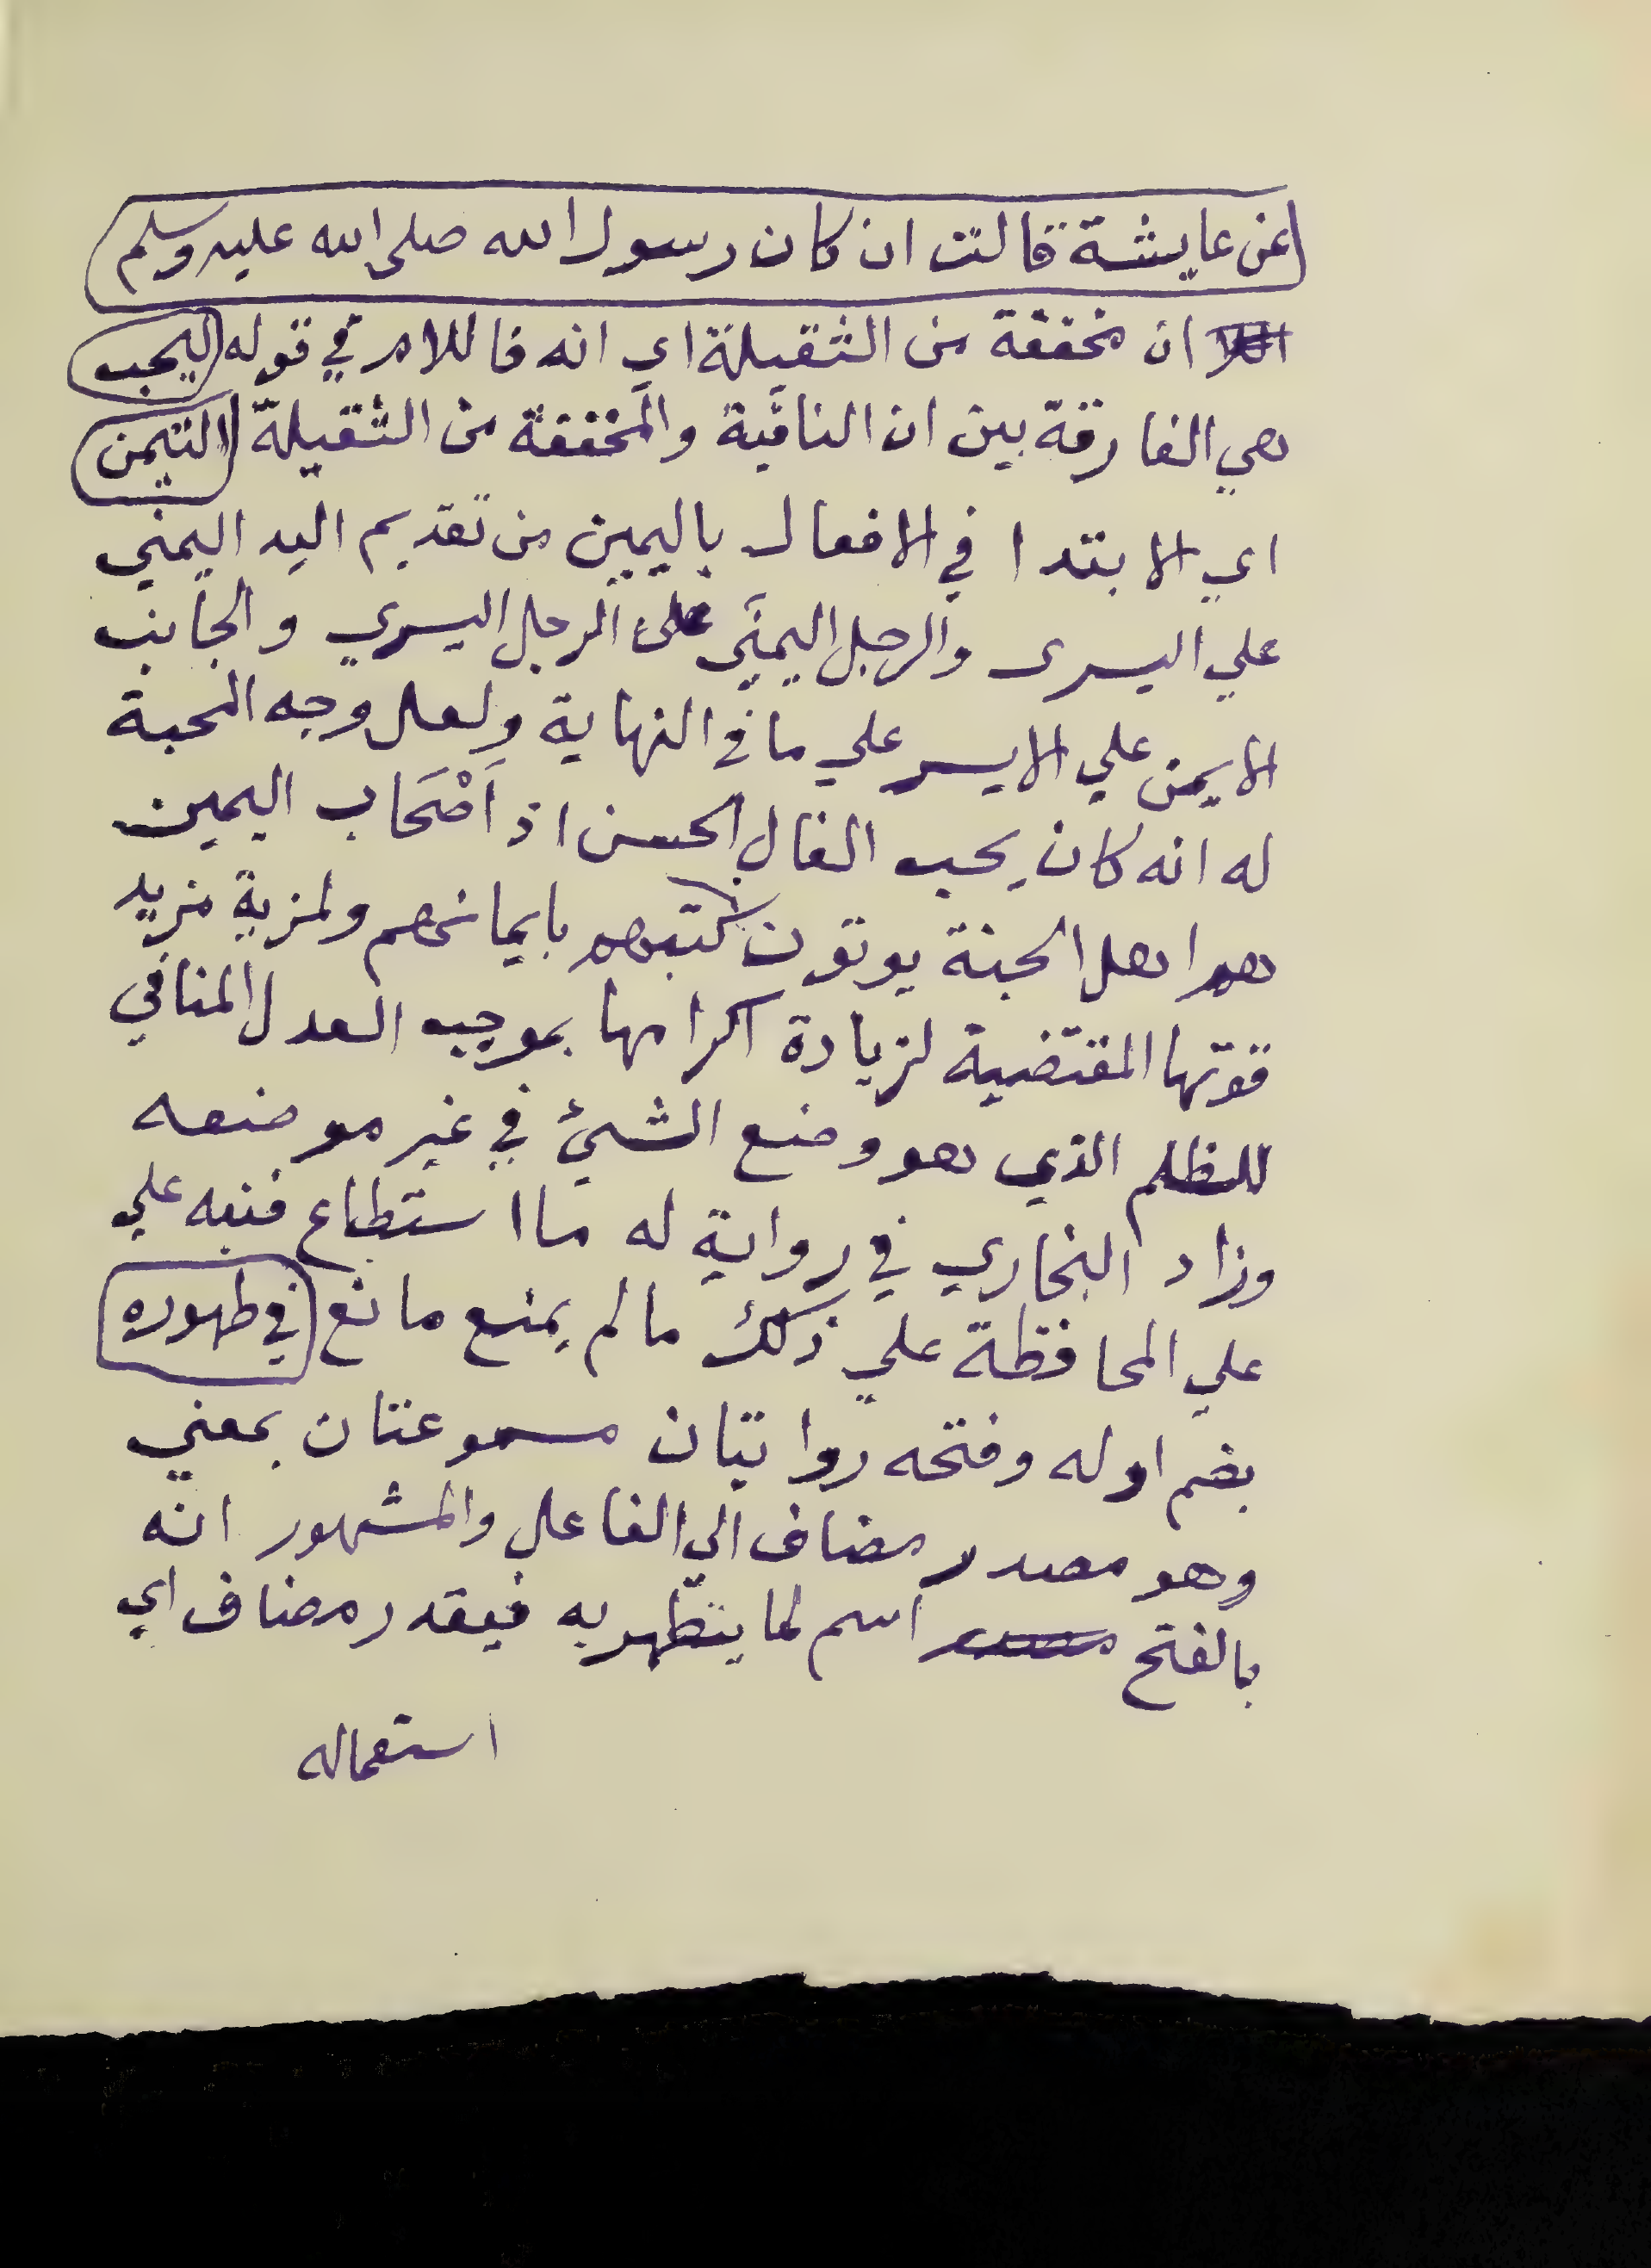 عن عايشة قالت ان كان رسول الله صلى الله عليه وسلم
ان مخففة من الثقيلة اي انه فاللام في قوله ليحب
هي الفارقة بين ان النافية والمخففة من الثقيلة التيمن
اي الابتدا في الافعال باليمين من تقديم اليد اليمني
علي اليسرى والرجل اليمنَى على الرجل اليسري والجانب
الايمن علي الايسر علي ما في النهاية ولعل وجه المحبة
له انه كان يحب الفال الحسن اذ اَصْحَاب اليمين
هم اهل الجنة يوتون كتبهم بايمانهم ولمزية مزيد
قوتها المقتضية لزيادة اكرامها بموجب العدل المنافي
للظلم الذي هو وضع الشيئ في غير موضعه
وزاد البخاري في رواية له ما استطاع فنبه علي
علي المحافظة علي ذلك مالم يمنع مانع في طهوره
بضم اوله وفتحه روايتان مسموعتان بمعني
وهو مصدر مضاف الي الفاعل والمشهور انه
بالفتح اسم لما يتطهر به فيقدر مضاف اي
استعماله